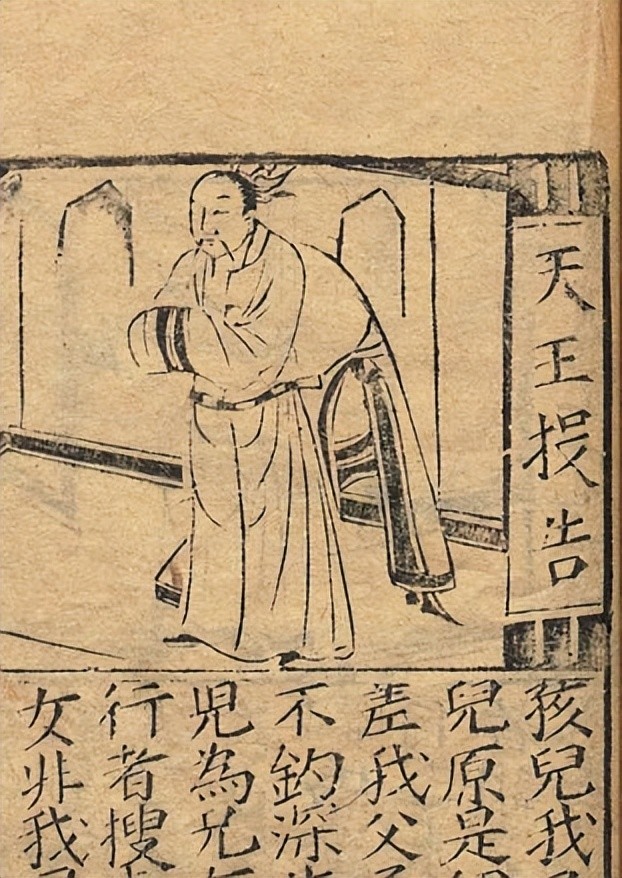 天王投告
孩兒我
兒原是
差我父
不釣深
児為兄
行者搜
女非我